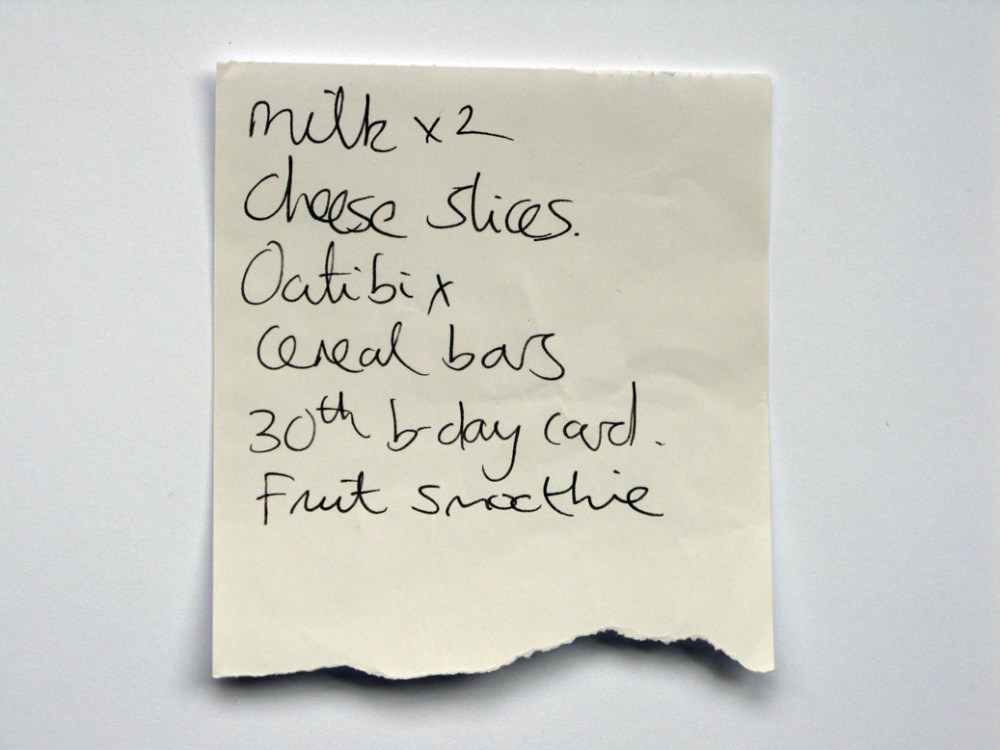 milk x 2
Cheese slices.
Oatibix
Cereal bars
30th b-day card.
Fruit smoothie